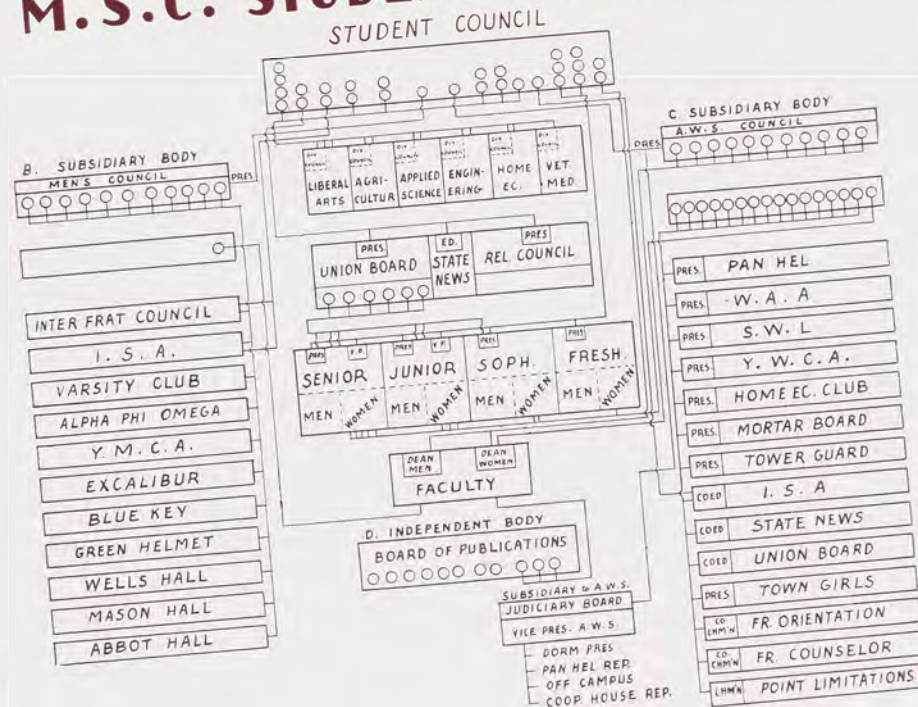 M.S.C. STUDEN
STUDENT COUNCIL
B. SUBSIDIARY BODY
MEN'S COUNCIL
PRES.
INTER FRAT COUNCIL
I. S. A.
VARSITY CLUB
ALPHA PHI OMEGA
Y. M. C. A.
EXCALIBUR
BLUE KEY
GREEN HELMET
WELLS HALL
MASON HALL
ABBOT HALL
DIV COUNCIL
DIV COUNCIL
DIV COUNCIL
DIV COUNCIL
DIV COUNCIL
DIV COUNCIL
LIBERAL ARTS
AGRI- CULTUR
APPLIED SCIENCE
ENGIN- EERING
HOME EC.
VET. MED
PRES.
UNION BOARD
ED.
STATE NEWS
PRES
REL COUNCIL
PRES
V.P.
SENIOR
MEN
WOMEN
PRES
V.P.
JUNIOR
MEN
WOMEN
PRES
SOPH.
MEN
WOMEN
PRES
FRESH.
MEN
WOMEN
DEAN MEN
DEAN WOMEN
FACULTY
D. INDEPENDENT BODY
BOARD OF PUBLICATIONS
SUBSIDIARY to A.W.S.
JUDICIARY BOARD
VICE PRES. A.W.S.
DORM PRES
PAN HEL REP.
OFF CAMPUS
COOP. HOUSE REP.
C SUBSIDIARY BODY
PRES. A.W.S COUNCIL
PRES. PAN HEL
PRES W.A.A
PRES S.W.L
PRES. Y.W.C.A.
PRES. HOME EC. CLUB
PRES. MORTAR BOARD
PRES TOWER GUARD
COED I.S.A
COED STATE NEWS
COED UNION BOARD
PRES TOWN GIRLS
CO CHM'N FR. ORIENTATION
CO. CHM'N FR. COUNSELOR
CHM'N POINT LIMITATIONS